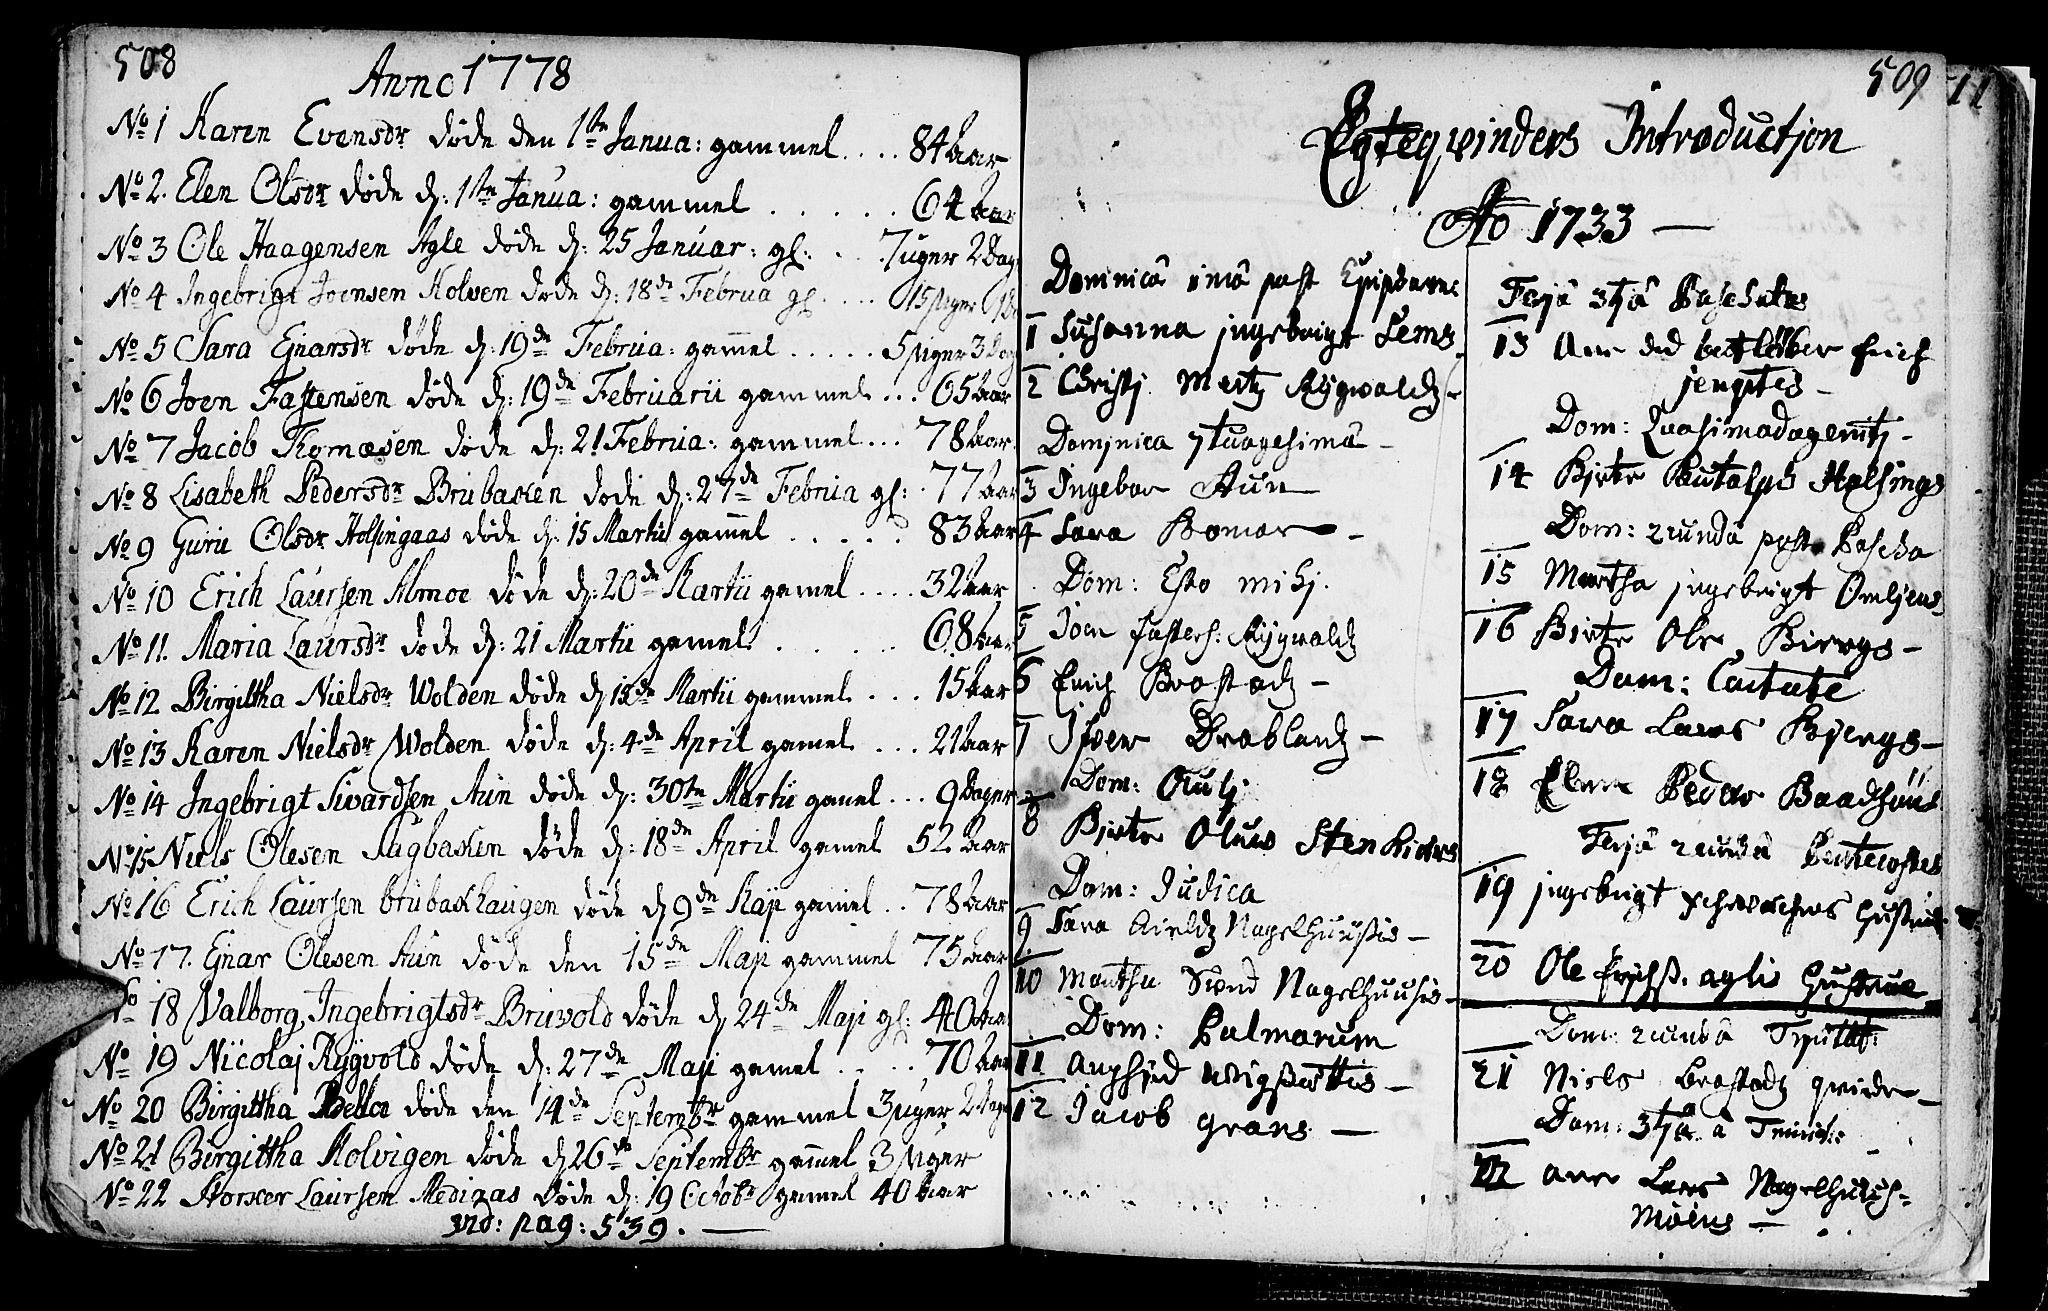 508
Anno 1778
No 1 Karen Evensdr døde den 1te Janua: gammel .... 84 Aar
No 2. Elen Olsdr døde d: 1te Janua: gammel ..... 64 Aar
No 3 Ole Haagensen Agle døde d: 25 Januar: gl: .. 7 uger 2 Dag
No 4 Ingebrigt Joensen Holden døde d: 18de Februa gl .... 15 uger
No 5 Sara Ejnarsdr døde d: 19de Februa: gamel ..... 5 uger 3 Dag
No 6 Joen Fastensen døde d: 19de Februarii gammel ... 65 Aar
No 7 Jacob Thomæsen døde d: 21 Februa: gammel ... 78 Aar
No 8 Lisabeth Pedersdr Brubaken døde d: 27de Februa gl: . 77 Aar
No 9 Guru Olsdr Holsingaas døde d: 15 Martii gammel ..... 83 Aar
No 10 Erich Laursen Almoe døde d: 20de Martii gamel .... 32 Aar
No 11. Maria Laursdr døde d: 21 Martii gamel ..... 68 Aar
No 12 Birgittha Nielsdr Wolden døde d 18de Martii gammel ... 15 Aar
No 13 Karen Nielsdr Wolden døde d: 4de April gamel ... 21 Aar
No 14 Ingebrigt Sivardsen Aun døde d: 30te Martii gamel ... 9 Dager
No 15 Niels Olesen Augbaken døde d: 18de April gamel 52 Aar
No 16 Erich Laursen Brubakhaugen døde d 9de Maji gamel .. 78 Aar
No 17. Ejnar Olesen Aun døde den 15de Maji gammel 75 Aar
No 18 Valborg Ingebrigtsdr Bruvold døde d 24de Maji gl: 40 Aar
No 19 Nicolaj Rygvold døde d: 27de Maji gamel .... 70 Aar
No 20 Birgittha døde den 14de Septembr gammel 3 uger 2 Dage
No 21 Birgittha Holvigen døde d 26de Septembr gammel 3 uger
No 22 Laursen Medizas døde d: 19 Octobr gamel 40 Aar
vid: pag: 539.
509
11
Egteqvinders Introductjon
Ao 1733
Dominicâ 1mâ post Epiphanie
1 Susanna jngebrigt Lems
2 Christj. Mertz Rygvaldz
Domjnica 7tuagesimâ
3 Ingebor Aun
4 Sara Bomar
Dom: Esto mihj.
5 Joen fastens: Rygvaldz
6 Erich Brostadz
7 Ifver Drablandz
Dom: Oculj
8 Bjrte Oluis Stenkiers
Dom: Judica
9 Sara Nagelhuusis
10 Martha Svend Nagelhuusis
Dom: Palmarum
11
12 Jacob Grans
Ferjâ 3tjâ Paschatos
13 Ane Erich
jengstes
Dom: Qvasimodogenitj
14 Bjrte Halsings
Dom: 2cundâ post Pascha
15 Martha jngebrigt Omljens
16 Birte Ole Biergs
Dom: Cantate
17 Sara Lars Bjergs
18 Elen Peder Baadhuus
Ferjâ 2cundâ Pentecostes
19 jngebrigt Hustrue
20 Ole Erichs. aglis Hustrue
Dom: 2cundâ Trinit:
21 Niels Brostadz qvinde
Dom: 3tjâ â Trinit:
22 Ane Lars Nagelhuus-
Moens